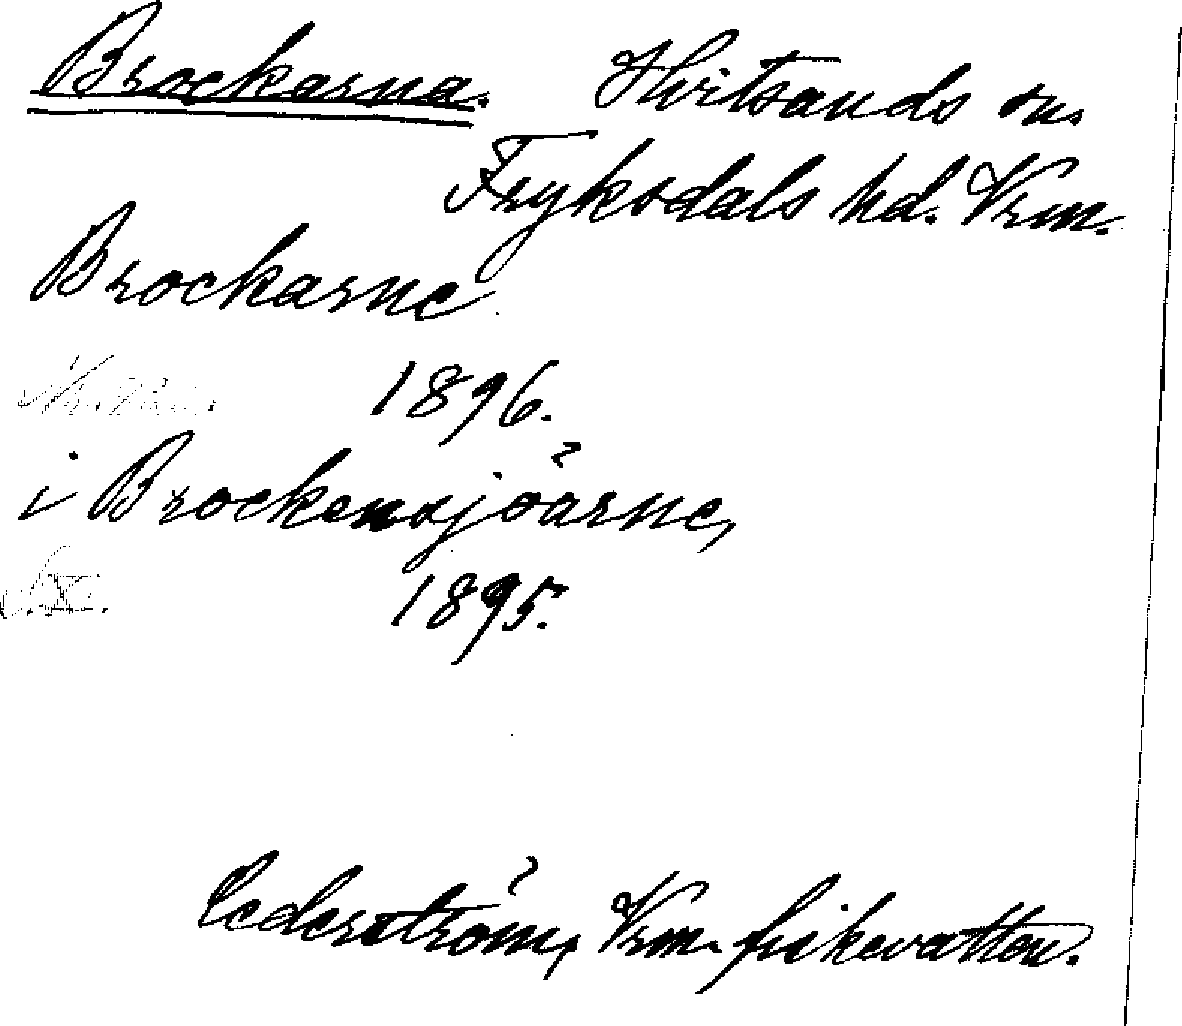 Brockarna. Hvitsands sn.
Fryksdals hd. Vrm.
Brockarne
1896.
i Brockensjöarne,
1895.
Cederström, Vrm. fiskevatten.